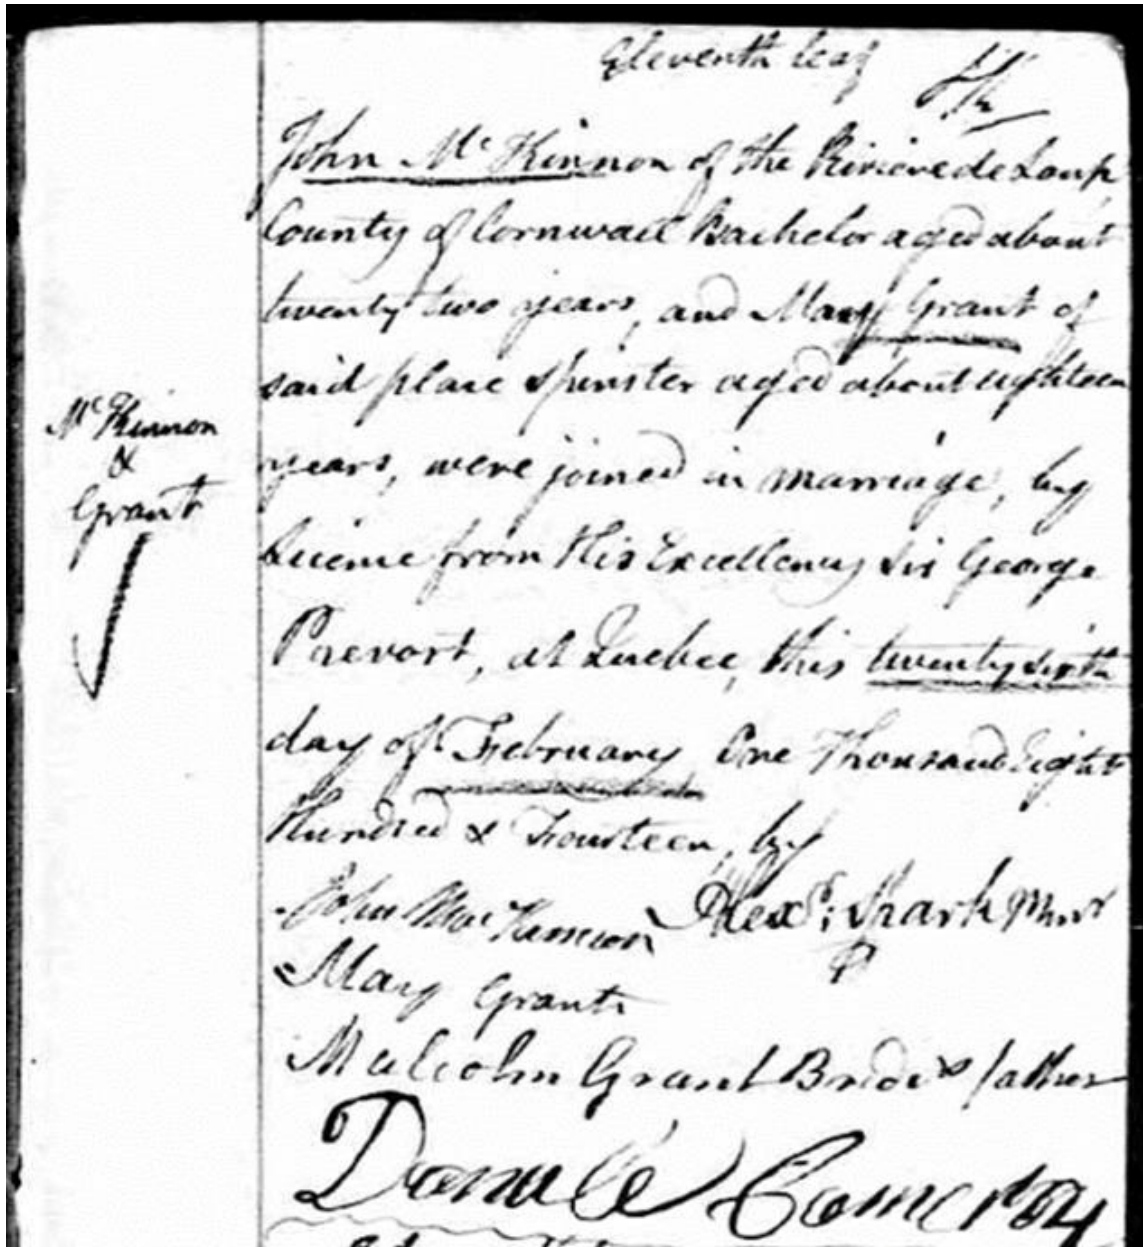 Eleventh leaf
John Mc Kinnon of the Riviere de Loup
County of Cornwall Bachelor aged about
twenty two years, and Mary Grant of
said place spinster aged about eighteen
years, were joined in marriage, by
Mc Kinnon
&
Grant
License from His Excellency Sir George
Prevost, at Quebec, this twenty sixth
day of February One Thousand Eight
Hundred & Fourteen, by
John Mac Kinnon Alexr: Spark Minr
Mary Grant
Malcolm Grant Brides father
Donald Cameron